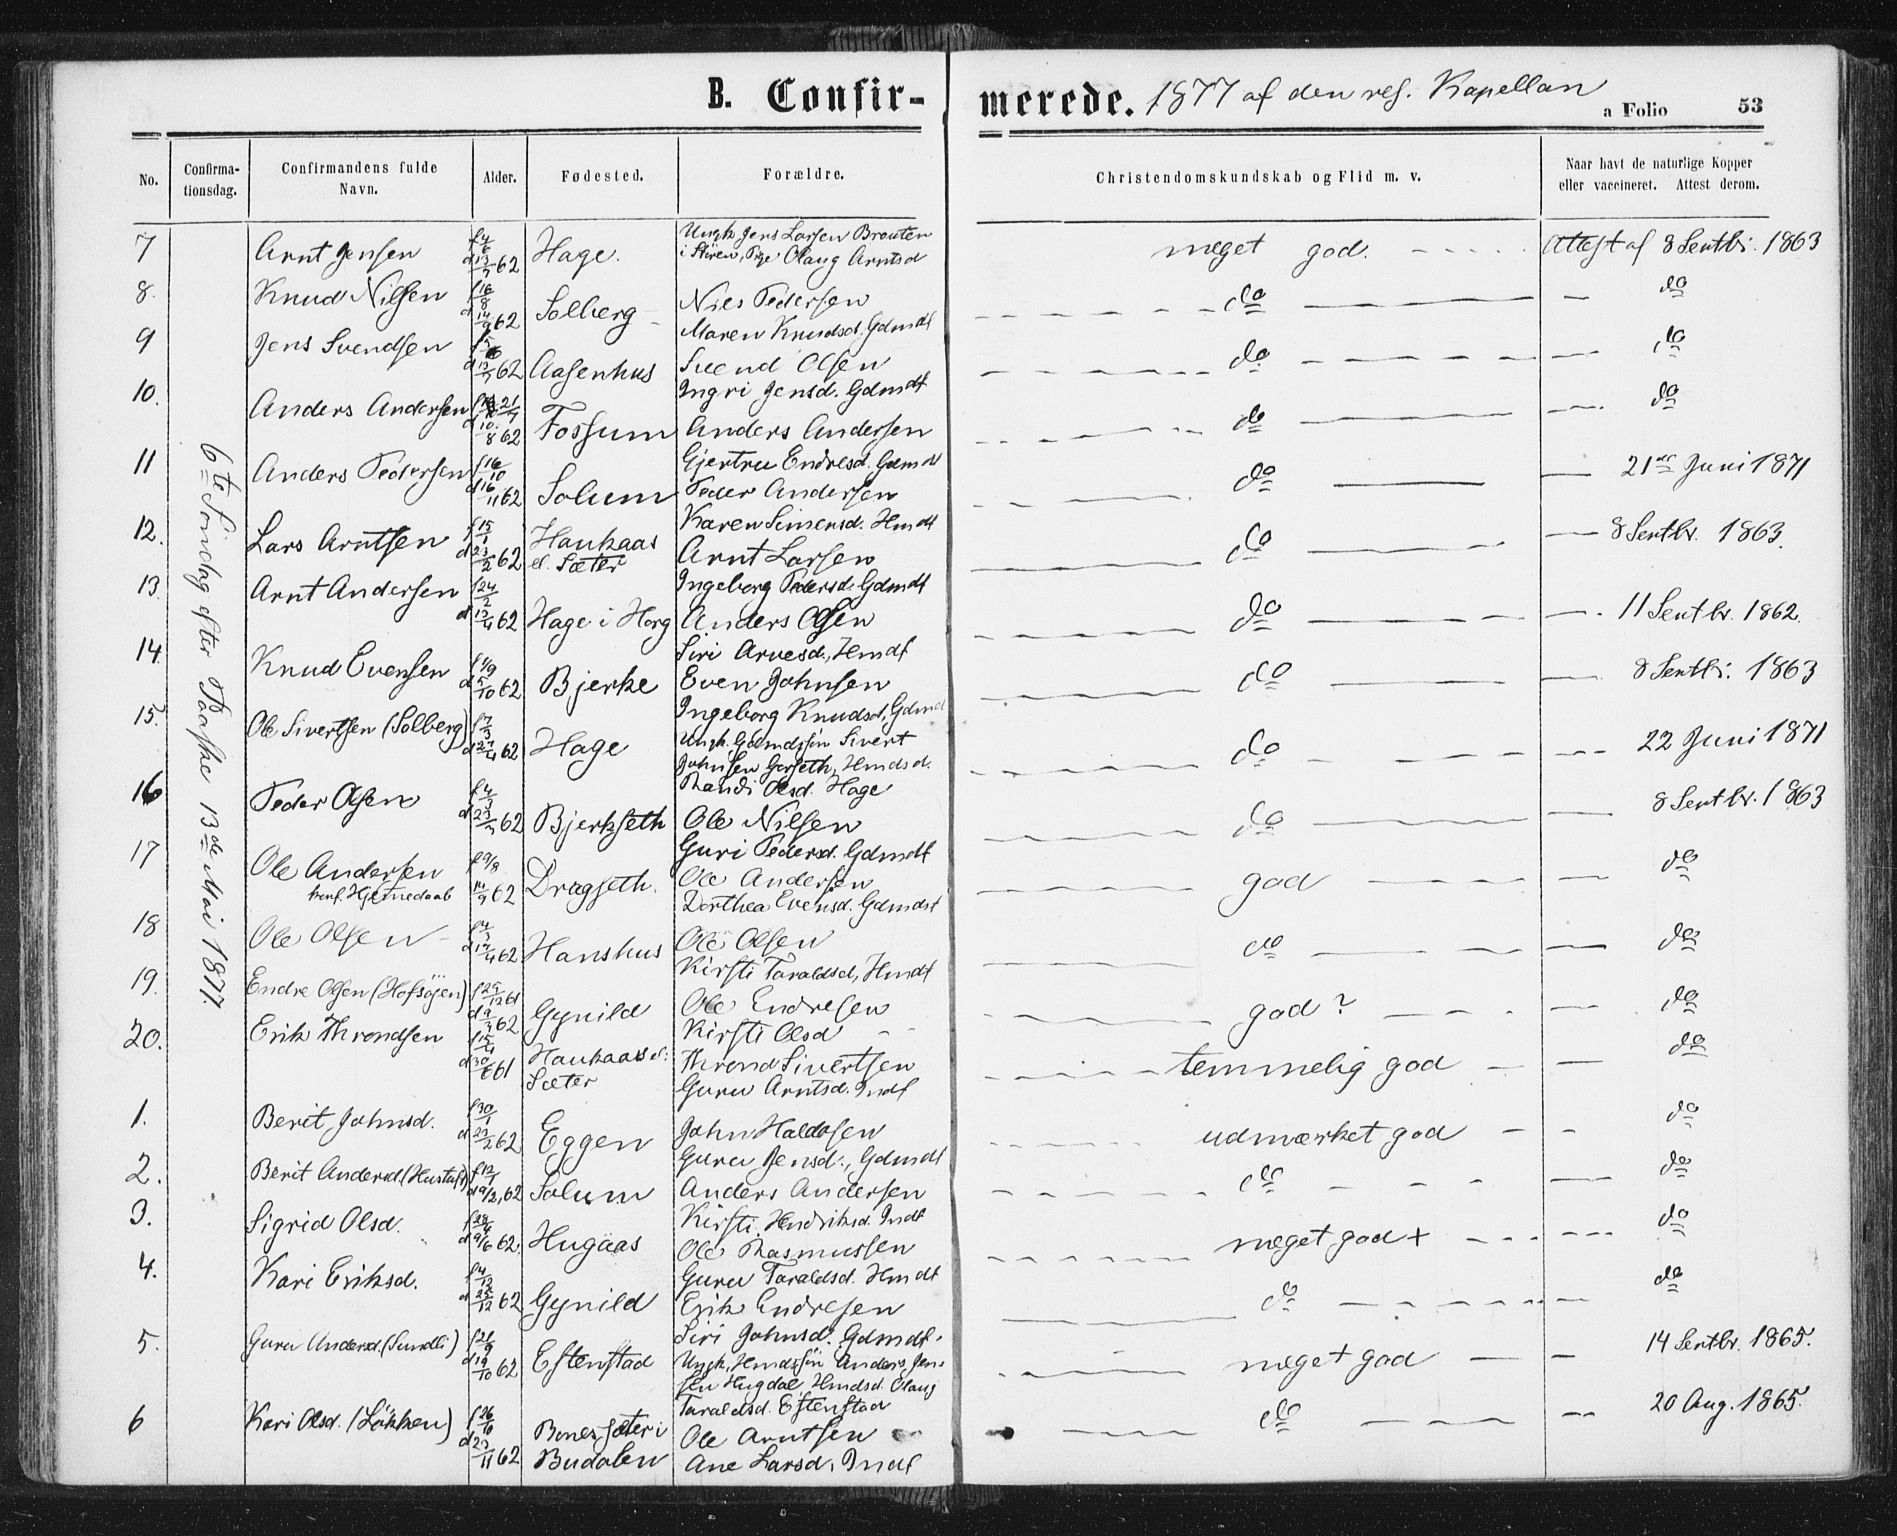 B. Confir- merede. 1877 af den res. Kapellan
a Folio 53
No. Confirma-tionsdag. Confirmandens fulde Navn. Alder. Fødested. Forældre. Christendomskundskab og Flid m. v. Naar havt de naturlige Kopper eller vaccineret. Attest derom.
6te Söndag efter Paaske 13de Mai 1877.
7 Arnt Jensen f 4/6 d 13/7 62 Hage. Ungk. Jens Larsen Brauten
i Stören, Pige Olaug Arntsd meget god. Attest af 8 Septbr. 1863
8. Knud Nilsen f 16/8 d 14/9 62 Solberg Niels Pedersen
Maren Knudsd. Gdmdf do do
9 Jens Svendsen d 13/7 62 Aasenhus Svend Olsen
Ingri Jensd. Gdmdf do do
10. Anders Andersen f 21/7 d 10/8 62 Fossum Anders Andersen
Gjertru Endresd. Gdmdf do do
11 Anders Pedersen f 16/10 d 16/11 62 Solum Peder Andersen
Karen Simensd. Hmdf do 21de Juni 1871
12. Lars Arntsen f 15/1 d 23/2 62 Haukaas
el. Sæter Arnt Larsen
Ingeborg Pedersd. Gdmdf do 8 Septbr. 1863.
13. Arnt Andersen f 24/2 d 13/4 62 Hage i Horg Anders Olsen
Siri Arvesd., Hmdf do 11 Septbr. 1862.
14. Knud Evensen f 4/9 d 5/10 62 Bjerke Even Johnsen
Ingeborg Knudsd, Gdmd do 8 Septbr. 1863
15. Ole Sivertsen (Solberg) f 7/3 d 27/4 62 Hage Ungk. Gdmdssön Sivert
Johnsen Gerseth, Hmdsd.
Randi Olsd. Hage do 22 Juni 1871
16 Peder Olsen f 4/3 d 23/3 62 Bjerkseth Ole Nilsen
Guri Pedersd. Gdmdf do 8 Septbr. 1863
17 Ole Andersen f 9/8 14/9 62 Dragseth. Ole Andersen
Dorthea Evensd. Gdmdf god do
18 Ole Olsen d 17/4 62 Hanshus Ole Olsen
Kirsti Taraldsd, Hmdf do do
19. Endre Olsen (Hofsöjen) f 29/12 61 d 9/3 62 Gynild Ole Endresen
Kirsti Olsd god? do
20. Erik Throndsen d 30/6 61 Haukaas el.
Sæter Thrond Sivertsen
Guru Arntsd. Indf temmelig god do
1. Berit Johnsd. f 30/1 d 23/2 62 Eggen John Haldosen
Guru Jensd., Gdmdf udmærket god do
2. Berit Andersd (Hustaft) f 12/1 d 9/2, 62 Solum Anders Andersen
Kirsti Hendriksd. Indf do do
3. Sigrid Olsd. d 9/6 62 Hugaas Ole Rasmussen
Guru Taraldsd. Hmdf meget god + do
4. Kari Eriksd. f 4/12 d 25/12 62 Gynild Erik Endresen
Siri Johnsd. Gdmdf. do do
5. Guru Andersd. (Sundli) f 21/9 d 19/10 62 Estenstad Ungk, Hmdssön Anders Jen-
sen Hugdal, Hmdsd. Olaug
Taraldsd. Estenstad meget god 14 Septbr. 1865.
6 Kari Olsd. (Lökken) f 26/10 d 23/11 62 Bonessæter i
Budalen Ole Arntsen
Ane Larsd, Indf do 20 Aug. 1865.